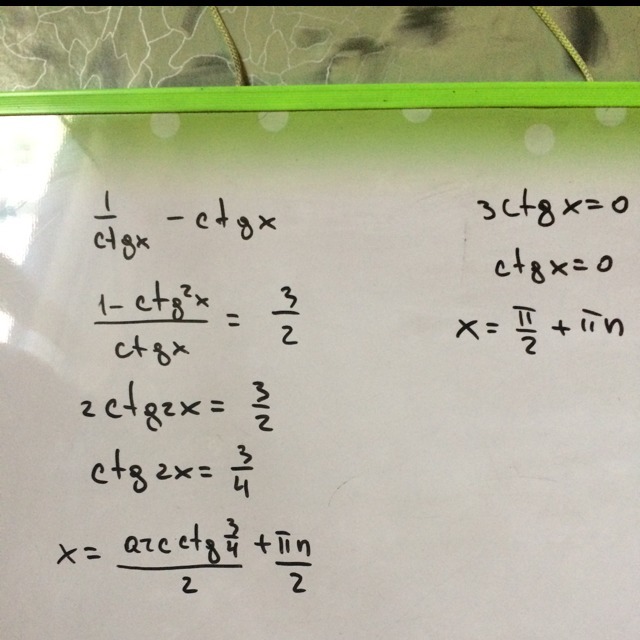 1/ctgx - ctgx
(1 - ctg²x)/ctgx = 3/2
2ctg2x = 3/2
ctg2x = 3/4
x = (arcctg 3/4)/2 + πn/2
3ctgx = 0
ctgx = 0
x = π/2 + πn